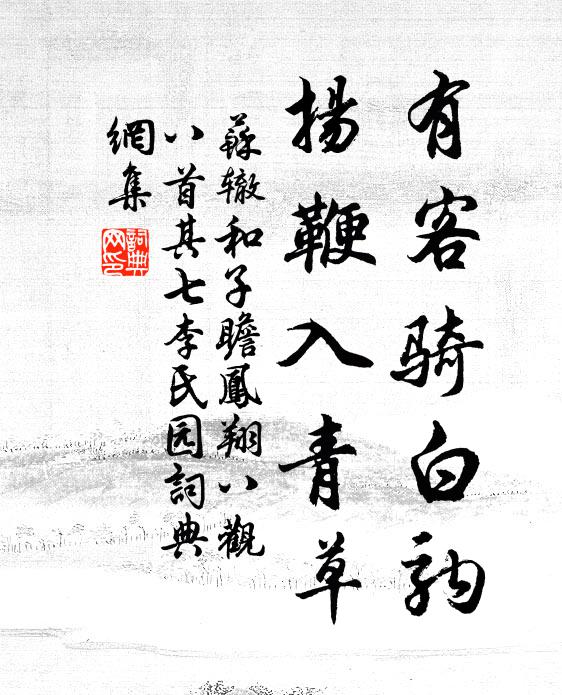 有客騎白駒
揚鞭入青草
蘇辙和子瞻鳳翔八觀
八首其七李氏园詞典
網集
詞典
网印